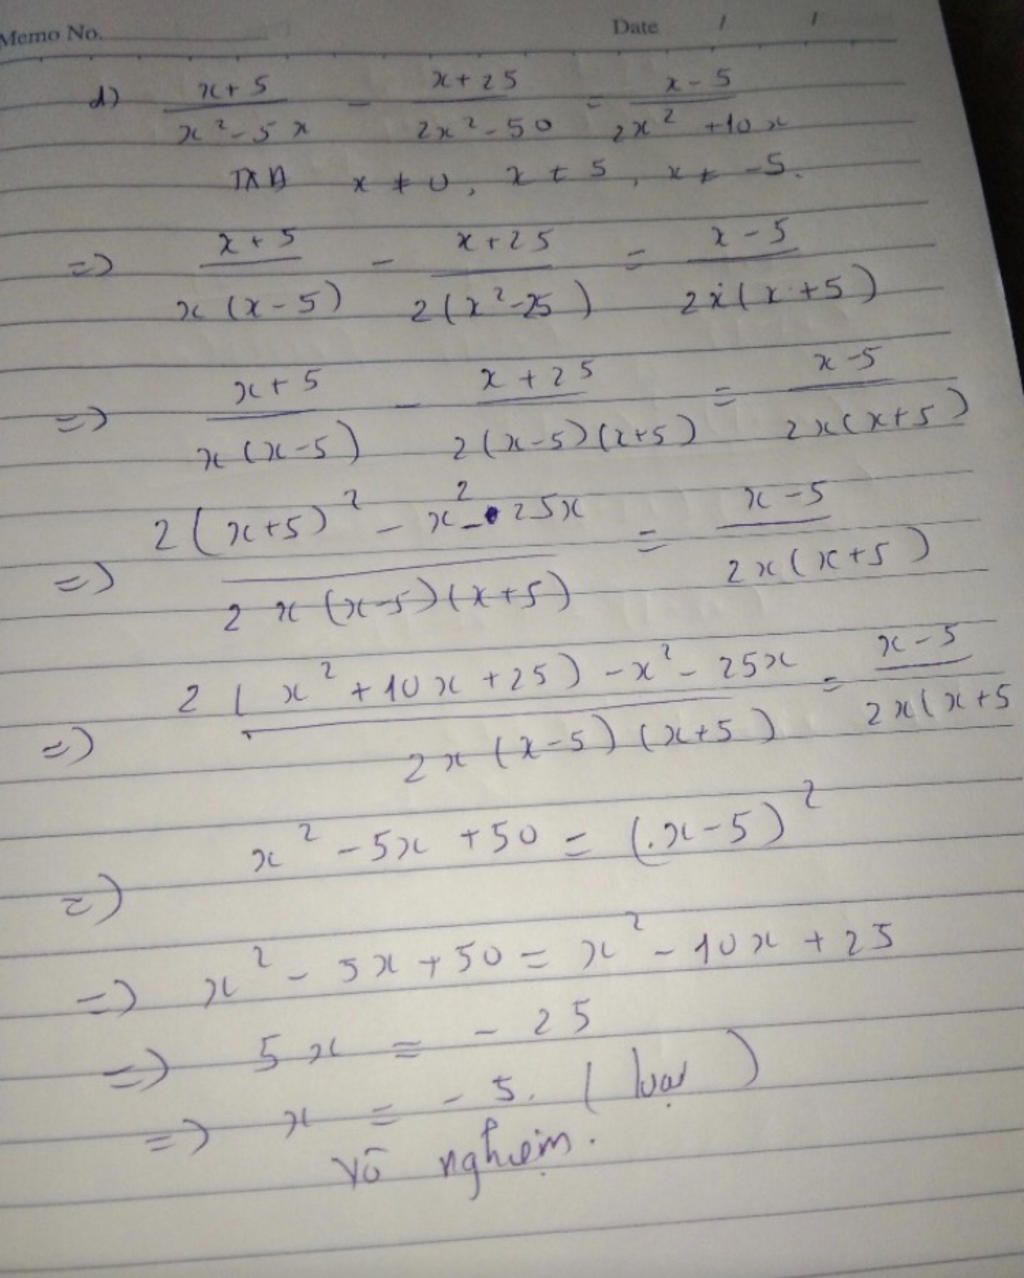 Memo No. Date / /
d) (x+5)/(x²-5x) - (x+25)/(2x²-50) = (x-5)/(2x²+10x)
TXĐ x ≠ 0, x ≠ 5, x ≠ -5.
=> (x+5)/(x(x-5)) - (x+25)/(2(x²-25)) = (x-5)/(2x(x+5))
=> (x+5)/(x(x-5)) - (x+25)/(2(x-5)(x+5)) = (x-5)/(2x(x+5))
=> (2(x+5)² - x² - 25x)/(2x(x-5)(x+5)) = (x-5)/(2x(x+5))
=> (2(x²+10x+25) - x² - 25x)/(2x(x-5)(x+5)) = (x-5)/(2x(x+5
=> x² - 5x + 50 = (x-5)²
=> x² - 5x + 50 = x² - 10x + 25
=> 5x = - 25
=> x = - 5. (loại)
Vô nghiệm.